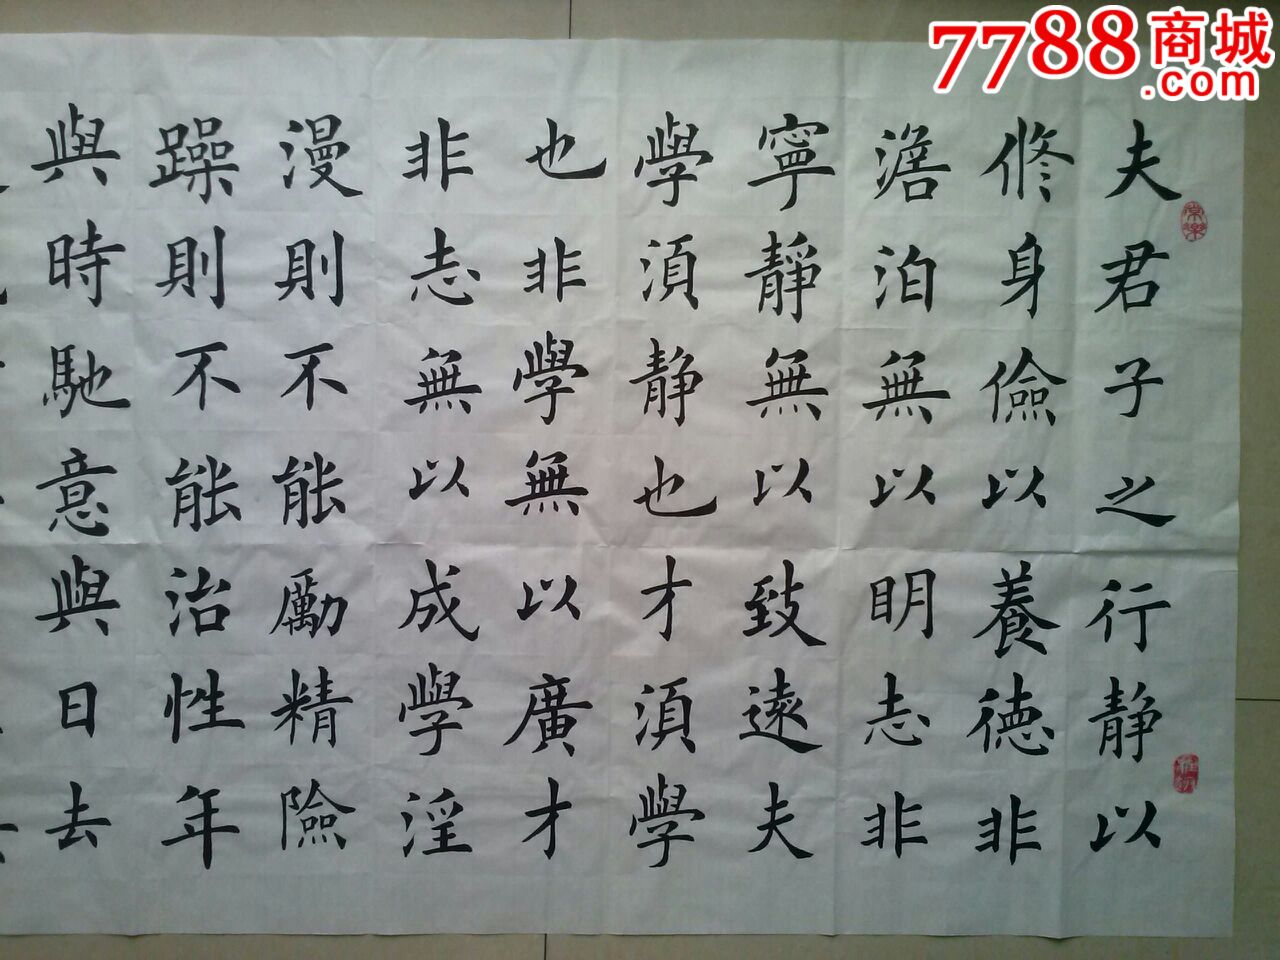 7788商城
.com
夫君子之行静以
修身儉以養德非
澹泊無以明志非
寧靜無以致遠夫
學須静也才須學
也非學無以廣才
非志無以成學淫
漫則不能勵精險
躁則不能治性年
與時馳意與日去